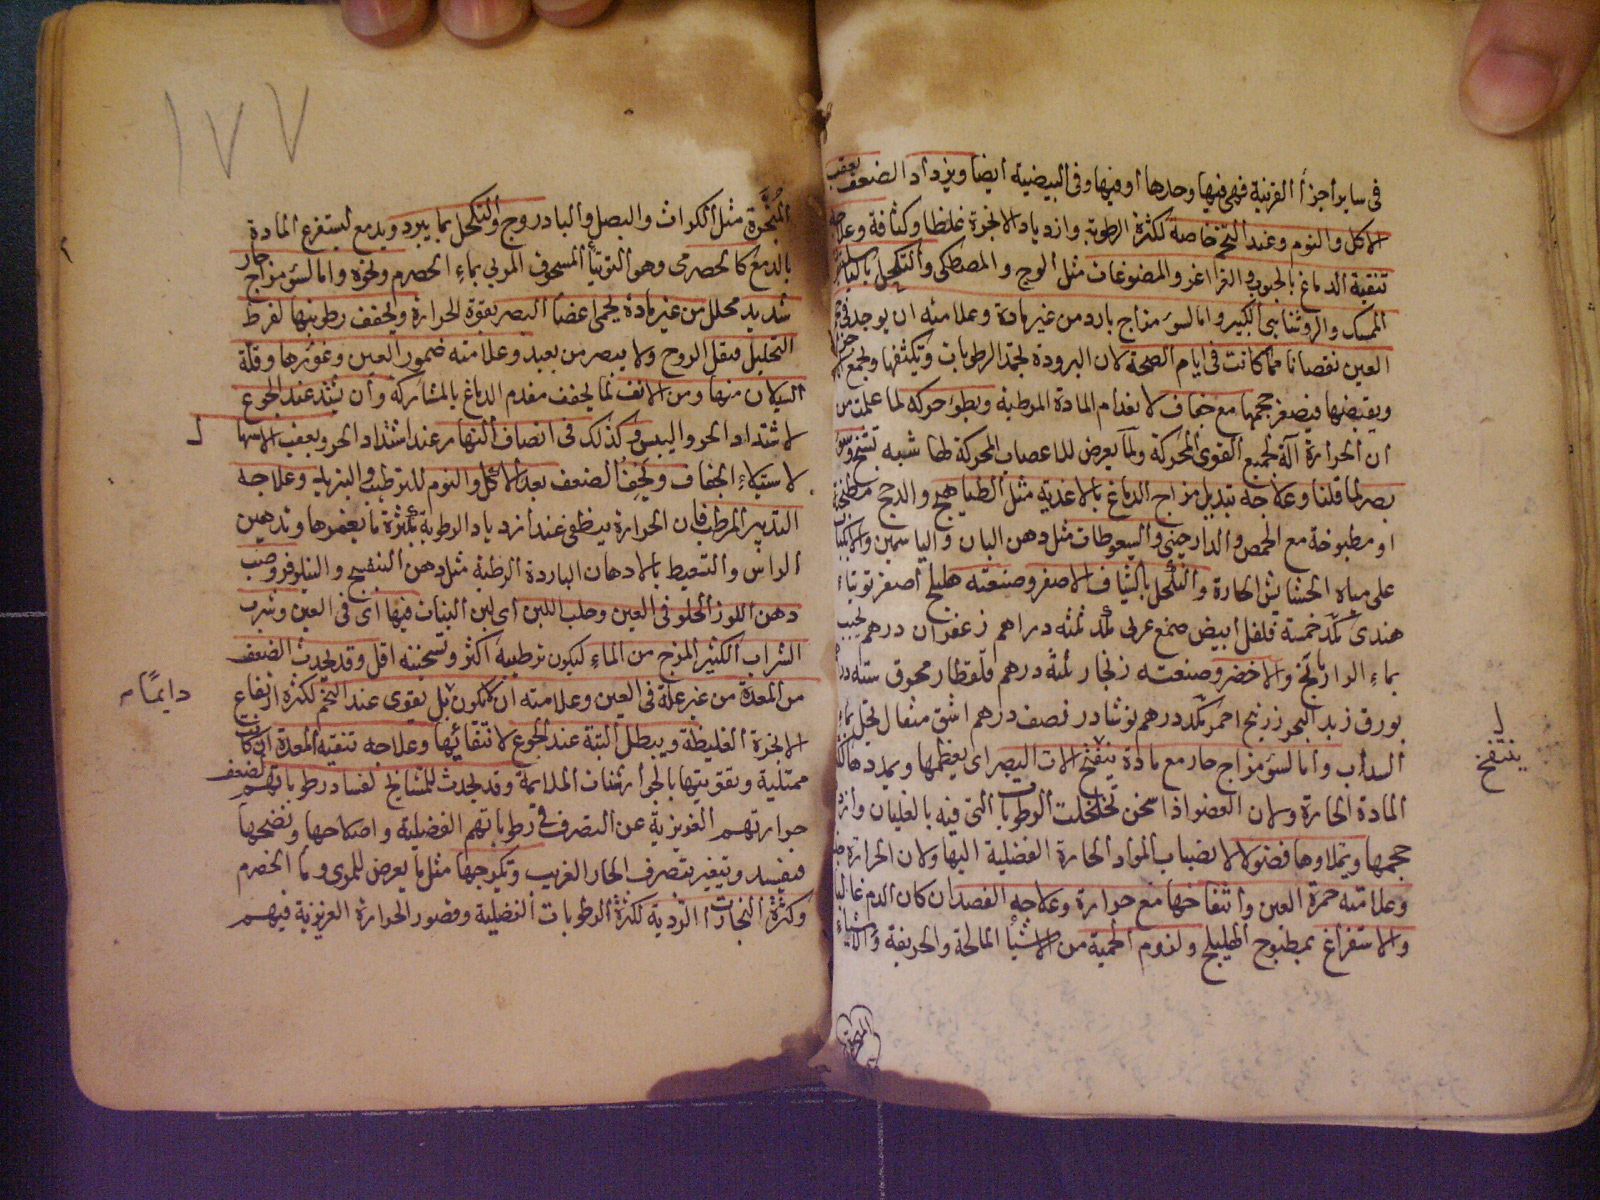 في ساير أجزأ القرنية فهي فيها وحدها او فيها وفي البيضية ايضا ويزداد الضعف بعقب
الاكل والنوم وعند التخم خاصة لكثرة الرطوبة وازدياد الابخرة غلظا وكثافة وعلاجه
تنقية الدماغ بالحبوب والغراغر والمضوغات مثل الوج والمصطكى والتكحل بالباسليقون
الممسك والروشنايي الكبير واما لسؤ مزاج بارد من غير مادة وعلامته ان يوجد في حجم
العين نقصانا مما كانت في ايام الصحة لان البرودة تجمد الرطوبات وتكثفها وتجمع
ويقبضها فيصغر حجمها مع جفاف لانعدام المادة المرطبة وبطؤ حركة لما علمت من
ان الحرارة آلة لجميع القوى المحركة ولما يعرض للاعصاب المحركة لها شبه تشنج وسؤ
بصر لما قلنا وعلاجه تبديل مزاج الدماغ بالاغذية مثل الطياهيج والدجج مطجنة
او مطبوخة مع الحمص والدارصيني والسعوطات مثل دهن البان والياسمين والانكباب
على مياه الحشايش الحارة والتكحل بالشياف الاصفر وصنعته هليلج أصفر توتياء
هندي كد خمسة فلفل ابيض صمغ عربي كد ثلثه دراهم زعفران درهم يحبب
بماء الرازيانج والاخضر وصنعته زنجار ثلثة درهم قلقطار محرق سته
بورق زبد البحر زرنيخ احمر كد درهم نوشادر نصف درهم اشق مثقال يحل بماء
السداب وأما لسؤ مزاج حار مع مادة ينفخ الات البصر اي يعظمها ويمددها
المادة الحارة ولان العضو اذا سخن تخلخلت الرطوبات التي فيه بالغليان وازداد
حجمها ويملاوها فضولا لانصباب المواد الحارة الفضلية اليها ولان الحرارة
وعلامته حمرة العين وانتفاخها مع حرارة وعلاجه الفصد ان كان الدم غالبا
والاستفراغ بمطبوخ الهليلج ولزوم الحمية من الاشيأ المالحة والحريفة والاشياء
ينتفخ
المبخرة
١٧٧
المُبَخِّرة مثل الكراث والبصل والبادروج والتكحل بما يبرد ويدمع ليستفرغ المادة
بالدمع كالحصرمي وهو التوتيأ المسحوق المربى بماء الحصرم ونحوه واما لسؤ مزاج حار
شديد محلل من غير مادة يحمي اعضأ البصر بقوة الحرارة ويجفف رطوبتها لفرط
التحليل فيقل الروح ولا يبصر من بعيد وعلامته ضمور العين وغؤرها وقلة
السيلان منها ومن الانف لما يجفف مقدم الدماغ بالمشاركة وأن يشتد عند الجوع
لاشتداد الحر واليبس وكذلك في انصاف النهار عند اشتداد الحر وبعقب الاسهال
لاستيلاء الجفاف ويَخِفُ الضعف بعد الاكل والنوم للترطيب والتبريد وعلاجه
التدبير المرطب فان الحرارة ينطفي عند ازدياد الرطوبة بكثرة ما يغمرها وتدهين
الراس والتسعيط بالادهان الباردة الرطبة مثل دهن البنفسج والنيلوفر وصب
دهن اللوز الحلو في العين وحلب اللبن اي لبن البنات فيها أي في العين وشرب
الشراب الكثير المزج من الماء ليكون ترطيبه اكثر وتسخينه اقل وقد يحدث الضعف
من المعدة من غير علة في العين وعلامته ان لا يكون بل يقوى عند التخم لكثرة ارتفاع
دايمًا
الابخرة الغليظة ويبطل البتة عند الجوع لانتقائها وعلاجه تنقية المعدة ان كانت
ممتلية وتقويتها بالجوارشنات الملايمة وقد يحدث للمشايخ لفساد رطوباتهم لضعف
حرارتهم الغريزية عن التصرف في رطوباتهم الفضلية واصلاحها ونضجها
فيفسد ويتغير بتصرف الحار الغريب وتكرجها مثل ما يعرض للمري وماء الحصرم
وكثرة البخارات الردية لكثرة الرطوبات الفضلية وقصور الحرارة الغريزية فيهم